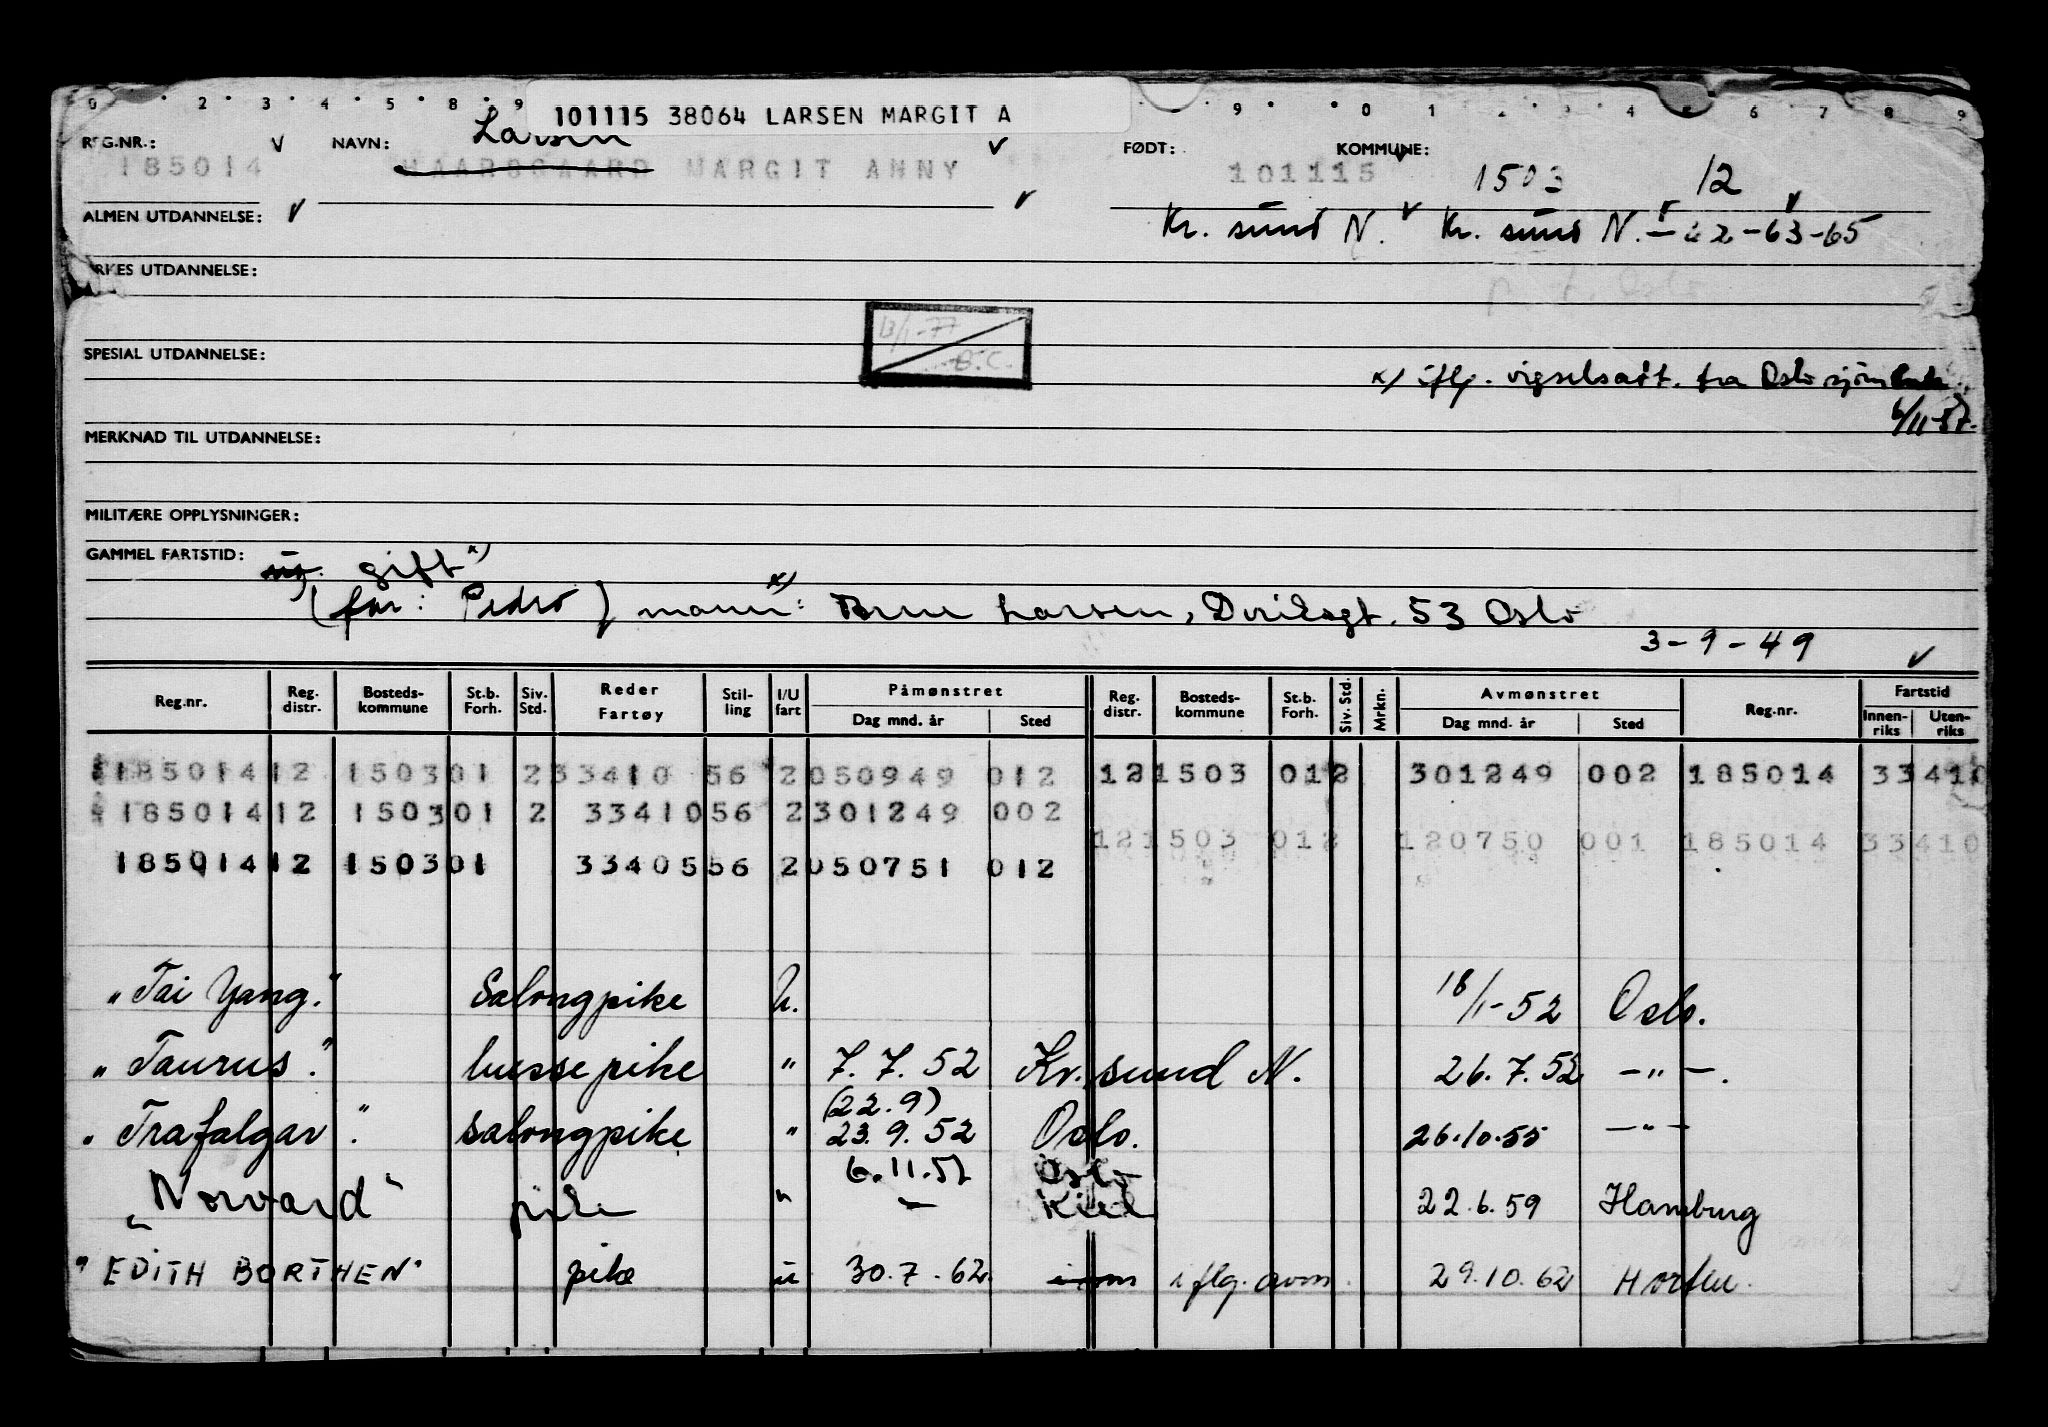 0 2 3 4 5 8 9 9 0 1 2 3 4 5 6 7 8 9
101115 38064 LARSEN MARGIT A
Larsen
REG.NR.: NAVN: FØDT: KOMMUNE:
185014 HAARSGAARD MARGIT ANNY 101115 1503 12
ALMEN UTDANNELSE: Kr. sund N. Kr. sund N. - 62-63-65
YRKES UTDANNELSE:
13/1-77
B.C.
SPESIAL UTDANNELSE:
x) iflg. vigselsatt. fra Oslo
6/11-57.
MERKNAD TIL UTDANNELSE:
MILITÆRE OPPLYSNINGER:
GAMMEL FARTSTID: gift x)
(far: Pedro) mann x): Arne Larsen, 53 Oslo
3-9-49
Reg.nr. Reg. distr. Bosteds-kommune St.b. Forh. Siv. Std. Reder Fartøy Stil-ling I/U fart Påmønstret Dag mnd. år Sted Reg. distr. Bosteds-kommune St.b. Forh. Siv. Std. Mrkn. Avmønstret Dag mnd. år Sted Reg.nr. Fartstid Innen-riks Uten-riks
185014 12 1503 01 2 33410 56 2 050949 012 12 1503 01 2 301249 002 185014 33410
185014 12 1503 01 2 33410 56 2 301249 002
12 1503 01 2 120750 001 185014 33410
185014 12 1503 01 33405 56 2 050751 012
"Tai Yang." Salongpike U. 18/1-52 Oslo.
"Taurus." bussepike " 7.7.52 Kr.sund N. 26.7.52 -"-.
(22.9)
"Trafalgar". salongpike " 23.9.52 Oslo. 26.10.55 -"-
6.11.57 Oslo
"Norvard" pike " - Kiel 22.6.59 Hamburg
"EDITH BORTHEN" pike u 30.7.62. iflg. avm. 29.10.62 Horten.